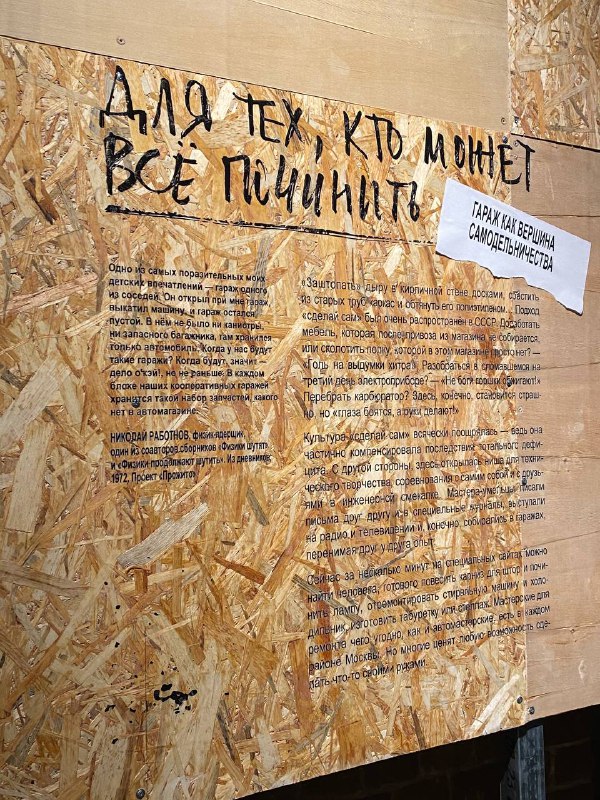 ДЛЯ ТЕХ, КТО МОЖЕТ
ВСЁ ПОЧИНИТЬ
ГАРАЖ КАК ВЕРШИНА
САМОДЕЛЬНИЧЕСТВА
Одно из самых поразительных моих
детских впечатлений — гараж одного
из соседей. Он открыл при мне гараж,
выкатил машину, и гараж остался
пустой. В нём не было ни канистры,
ни запасного багажника, там хранился
только автомобиль. Когда у нас будут
такие гаражи? Когда будут, значит —
дело о'кэй!, но не раньше. В каждом
блоке наших кооперативных гаражей
хранится такой набор запчастей, какого
нет в автомагазине.
НИКОЛАЙ РАБОТНОВ, физик-ядерщик,
один из соавторов сборников «Физики шутят»
и «Физики продолжают шутить». Из дневников,
1972, Проект «Прожито»
«Заштопать» дыру в кирпичной стене досками, смастить
из старых труб каркас и обтянуть его полиэтиленом... Подход
«сделай сам» был очень распространён в СССР. Доработать
мебель, которая после привоза из магазина не собирается,
или сколотить полку, которой в этом магазине просто нет? —
«Голь на выдумки хитра!» Разобраться в сломавшемся на
третий день электроприборе? — «Не боги горшки обжигают!»
Перебрать карбюратор? Здесь, конечно, становится страш-
но, но «глаза боятся, а руки делают!»
Культура «сделай сам» всячески поощрялась — ведь она
частично компенсировала последствия тотального дефи-
цита. С другой стороны, здесь открылась ниша для техни-
ческого творчества, соревнования с самим собой и с друзь-
ями в инженерной смекалке. Мастера-умельцы писали
письма друг другу и в специальные журналы, выступали
на радио и телевидении и, конечно, собирались в гаражах,
перенимая друг у друга опыт.
Сейчас за несколько минут на специальных сайтах можно
найти человека, готового повесить карниз для штор и почи-
нить лампу, отремонтировать стиральную машину и холо-
дильник, изготовить табуретку или стеллаж. Мастерские для
ремонта чего угодно, как и автомастерские, есть в каждом
районе Москвы. Но многие ценят любую возможность сде-
лать что-то своими руками.